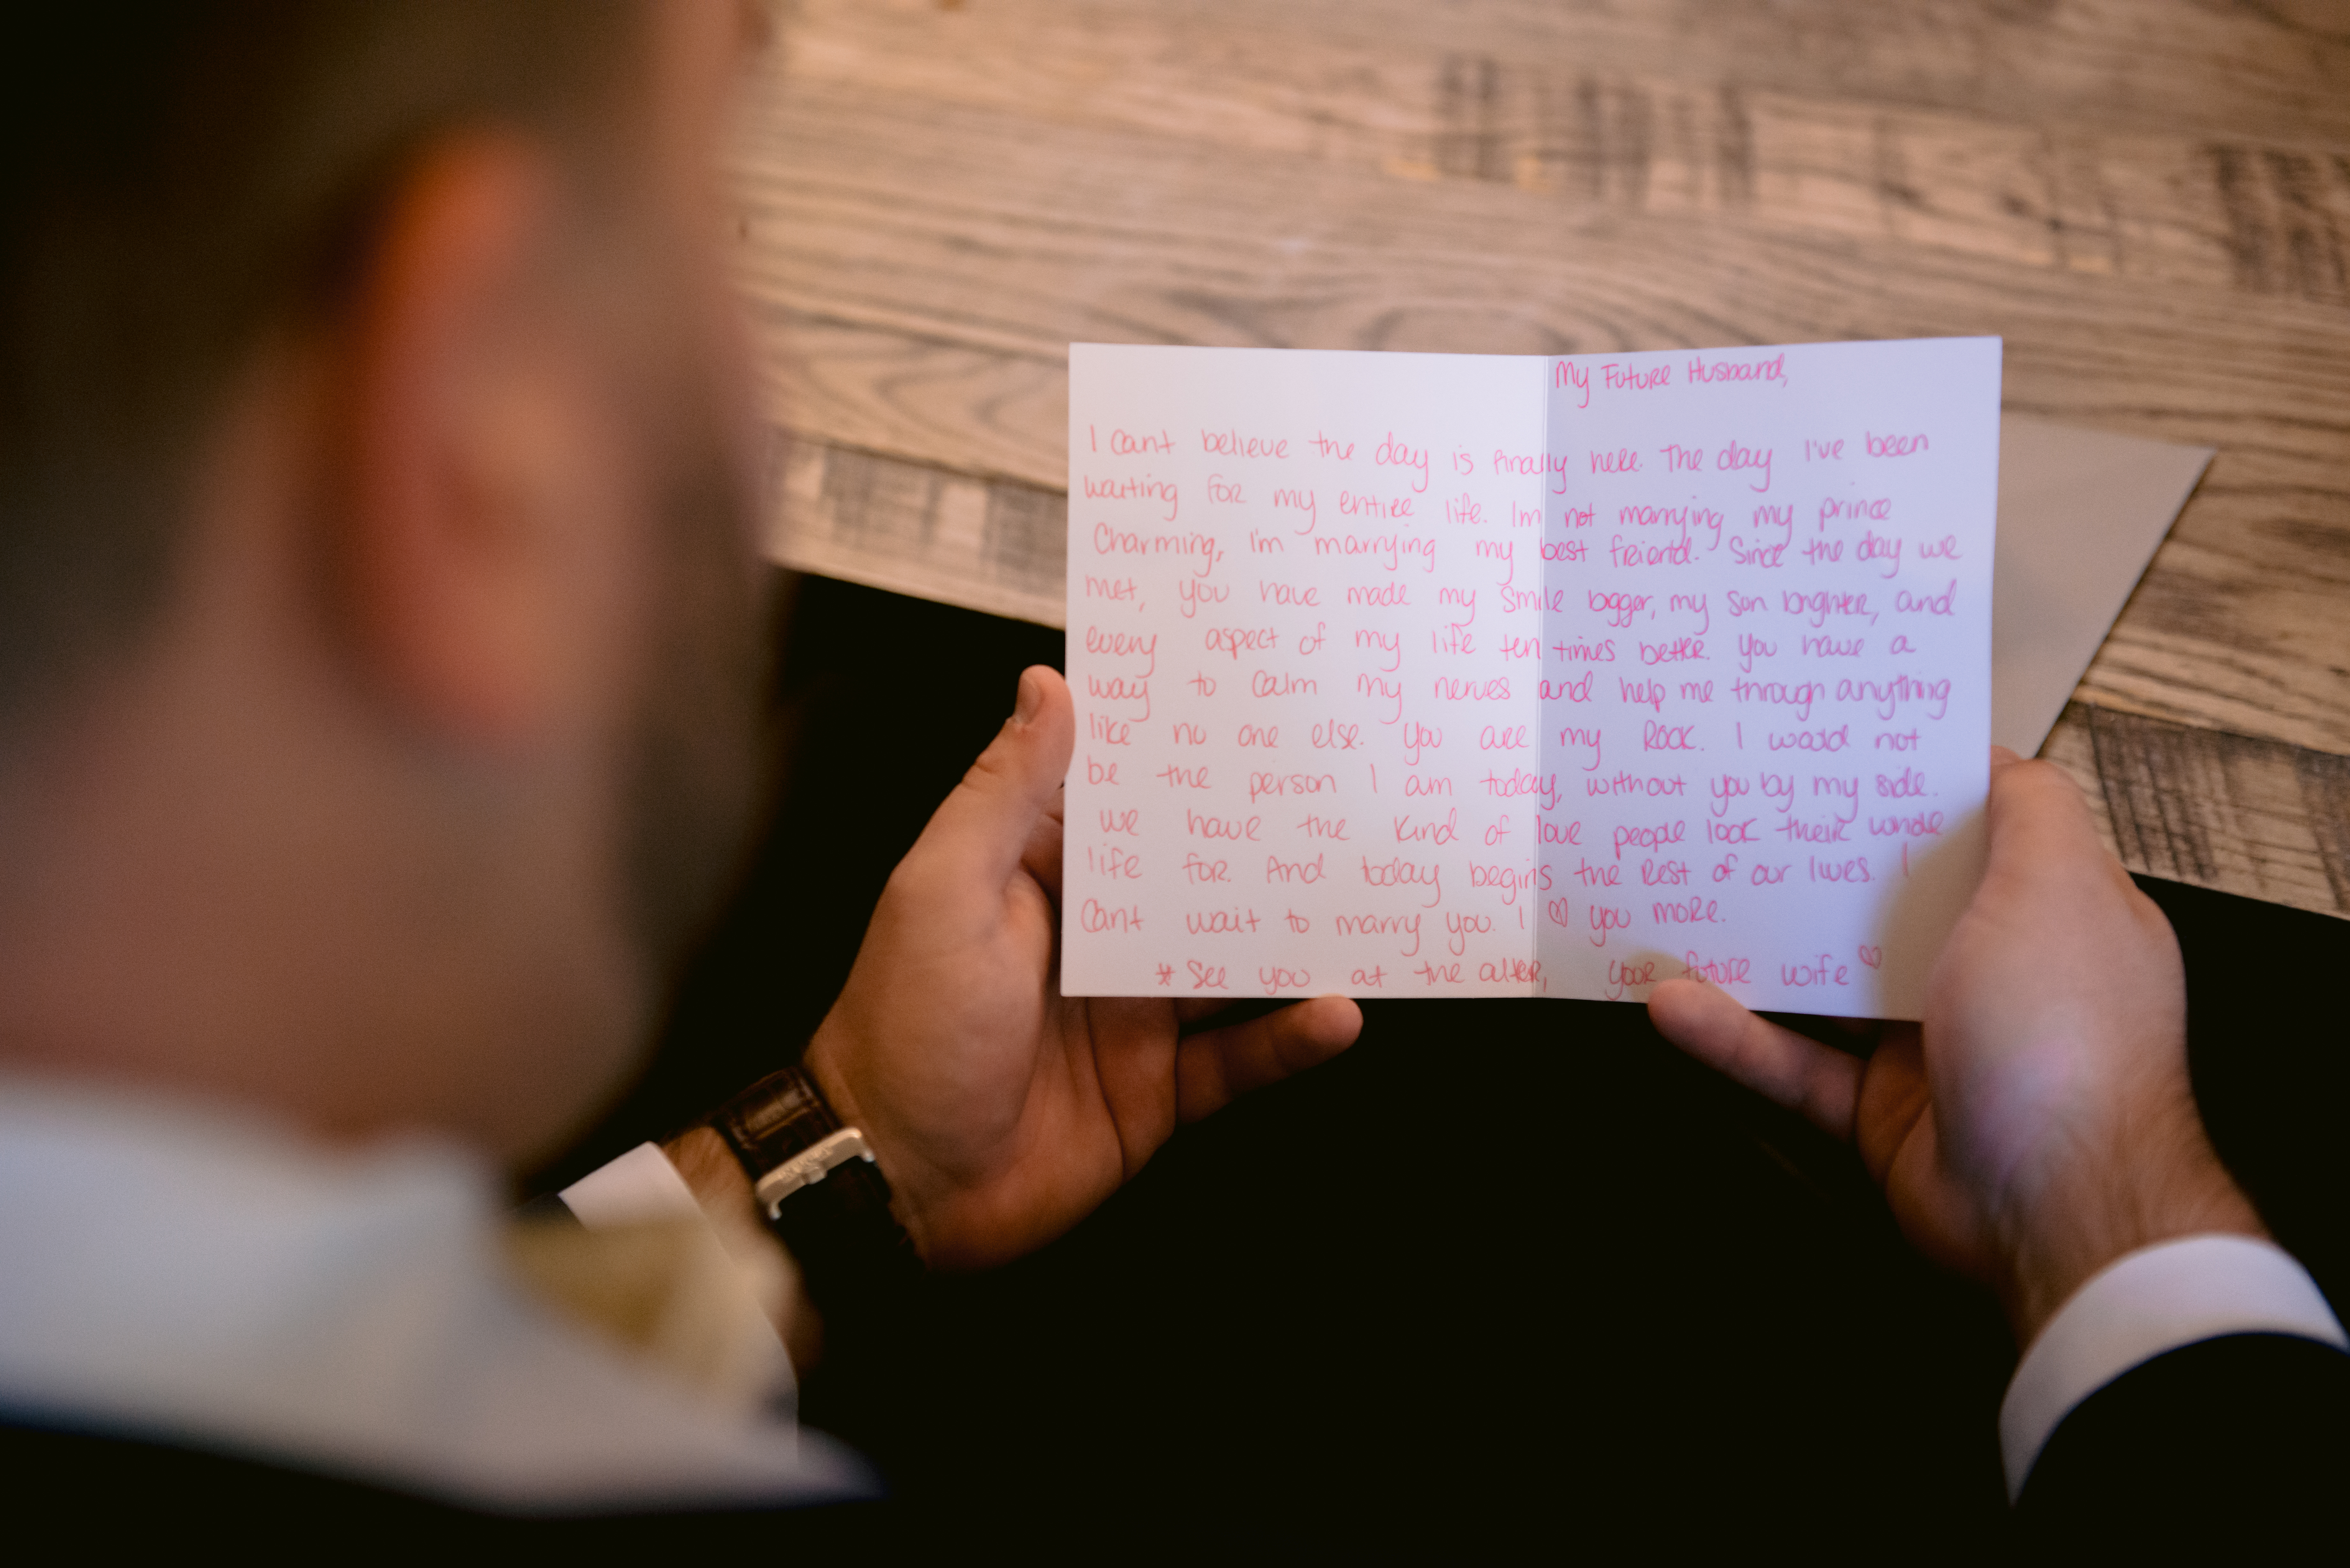 My Future Husband,
I Cant believe the day is finally here. The day I've been
waiting for my entire life. Im not marrying my prince
Charming, I'm marrying my best friend. Since the day we
met, you have made my smile bigger, my sun brighter, and
every aspect of my life ten times better. You have a
way to calm my nerves and help me through anything
like no one else. You are my Rock. I would not
be the person I am today, without you by my side.
we have the kind of love people look their whole
life for. And today begins the Rest of our lives. I
Cant wait to marry you. I ♡ you more.
* See you at the alter, your future wife ♡